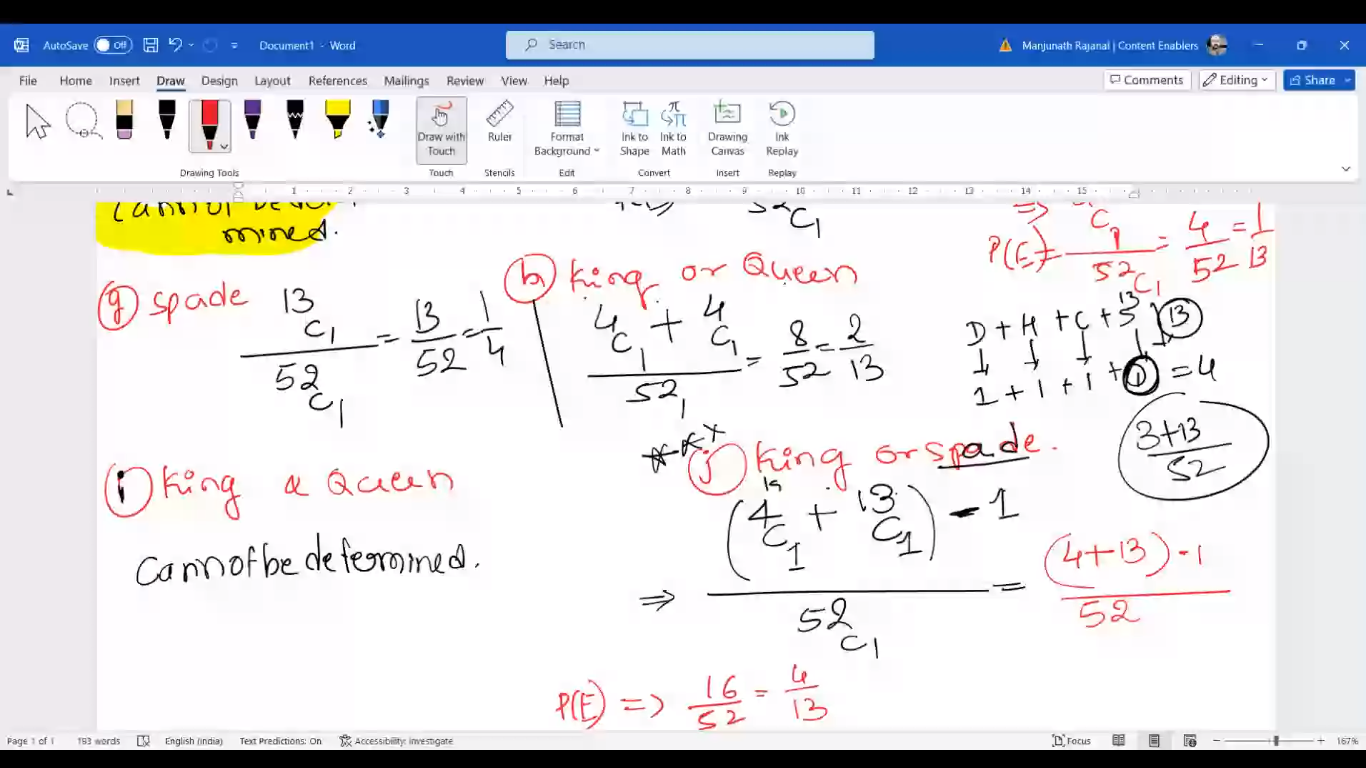 AutoSave Off Document1 - Word Search Manjunath Rajanal | Content Enablers
File Home Insert Draw Design Layout References Mailings Review View Help Comments Editing Share
Draw with Touch Ruler Format Background Ink to Shape Ink to Math Drawing Canvas Insert Ink Replay
Drawing Tools Touch Stencils Edit Convert Insert Replay
1 2 3 4 5 6 7 8 9 10 11 12 13 14 15
Cannot be deter
mined.
52C1
P(E) = C1 / 52C1 = 4/52 = 1/13
(g) Spade 13C1 / 52C1 = 13/52 = 1/4
(h) King or Queen
4C1 + 4C1 / 521 = 8/52 = 2/13
D + H + C + S 13 (13)
↓ ↓ ↓ ↓
1 + 1 + 1 + (1) = 4
3+13 / 52
(i) King & Queen
Cannot be determined.
(j) King or spade.
⇒ (4C1 + 13C1) - 1 / 52C1 = (4+13) - 1 / 52
P(E) ⇒ 16/52 = 4/13
Page 1 of 1 193 words English (India) Text Predictions: On Accessibility: Investigate Focus 167%